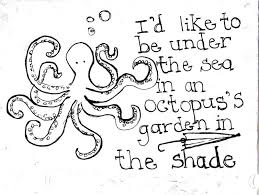 I'd like to
be under
the sea
in an
octopus's
garden in
the shade